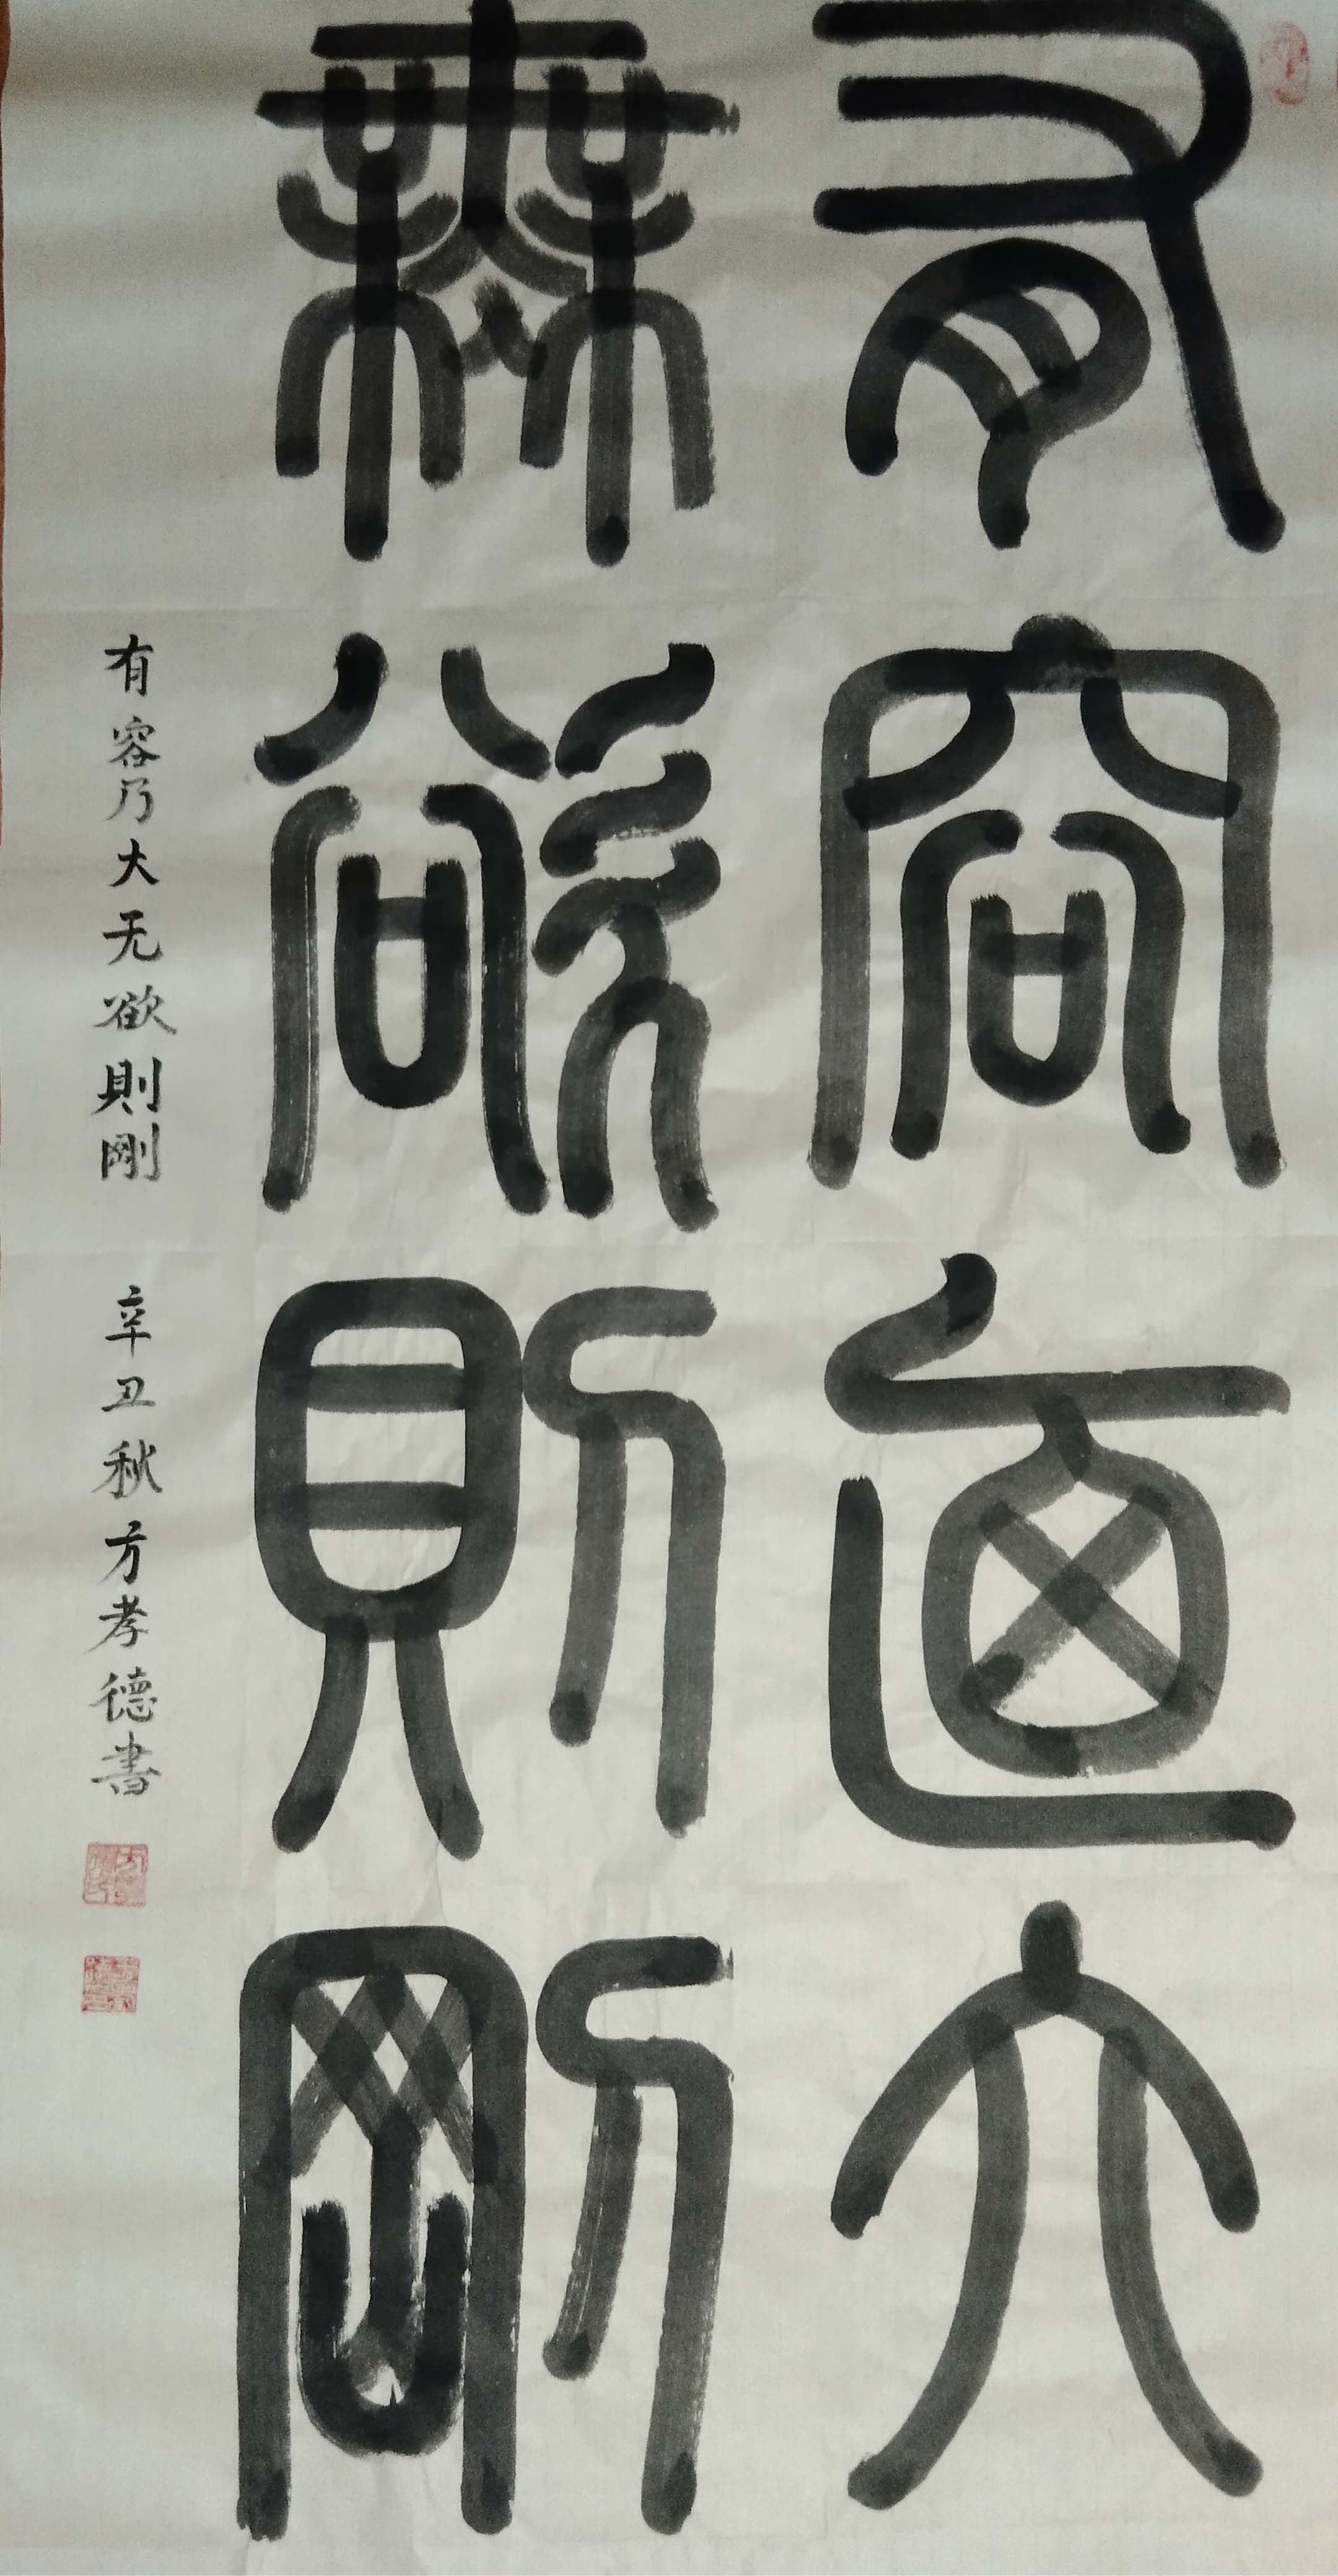 有容迺大
無欲則剛
有容乃大无欲則剛 辛丑秋方孝德書